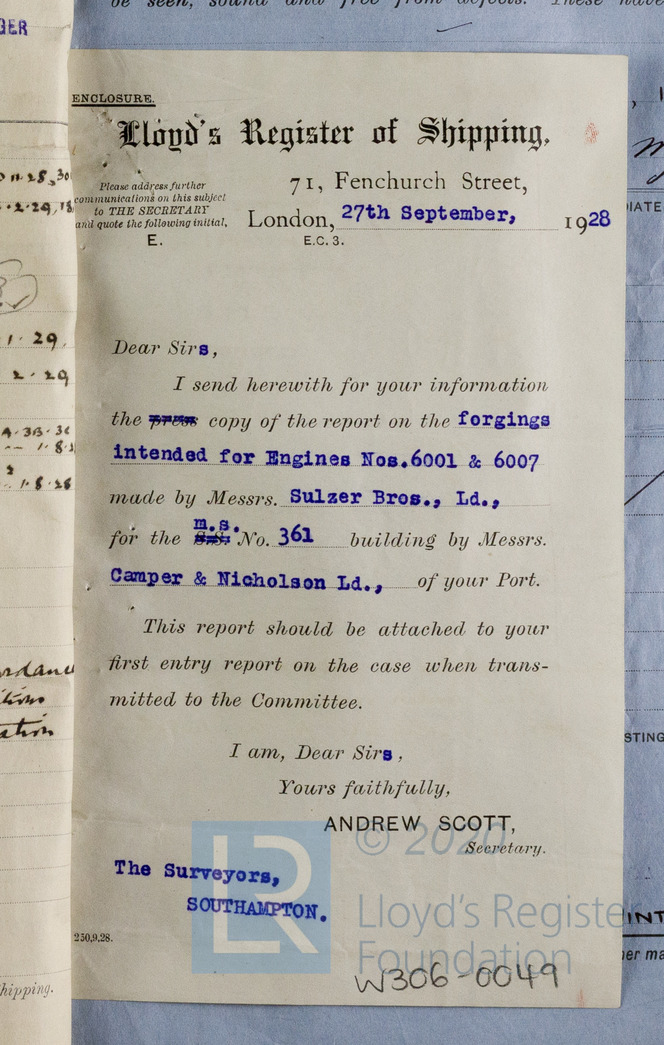 be seen, sound and free from defects. These have
GER
ENCLOSURE.
Lloyd's Register of Shipping,
71, Fenchurch Street,
Please address further
communications on this subject
to THE SECRETARY
and quote the following initial.
E.
London, 27th September, 1928
E.C. 3.
Dear Sirs,
I send herewith for your information
the press copy of the report on the forgings
intended for Engines Nos.6001 & 6007
made by Messrs. Sulzer Bros., Ld.,
m.s.
for the S.S. No. 361 building by Messrs.
Camper & Nicholson Ld., of your Port.
This report should be attached to your
first entry report on the case when trans-
mitted to the Committee.
I am, Dear Sirs,
Yours faithfully,
ANDREW SCOTT,
Secretary.
The Surveyors,
SOUTHAMPTON.
250,9,28.
© 2020
LR
Lloyd's Register
Foundation
W306-0049
hipping.
1.29.
2.29
1.8.28
IATE
STING
INT